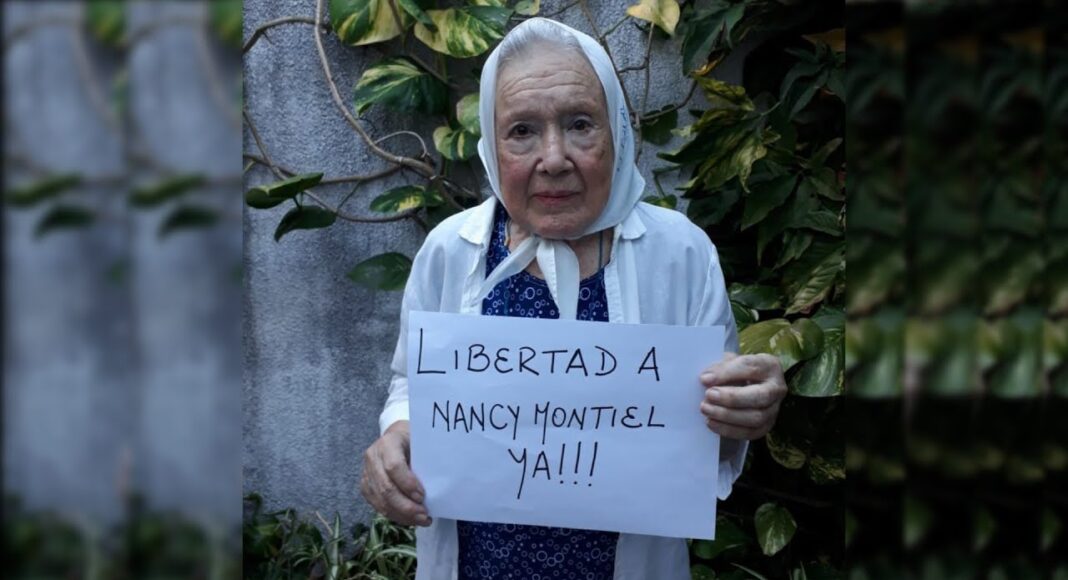 LIBERTAD A
NANCY MONTIEL
YA!!!